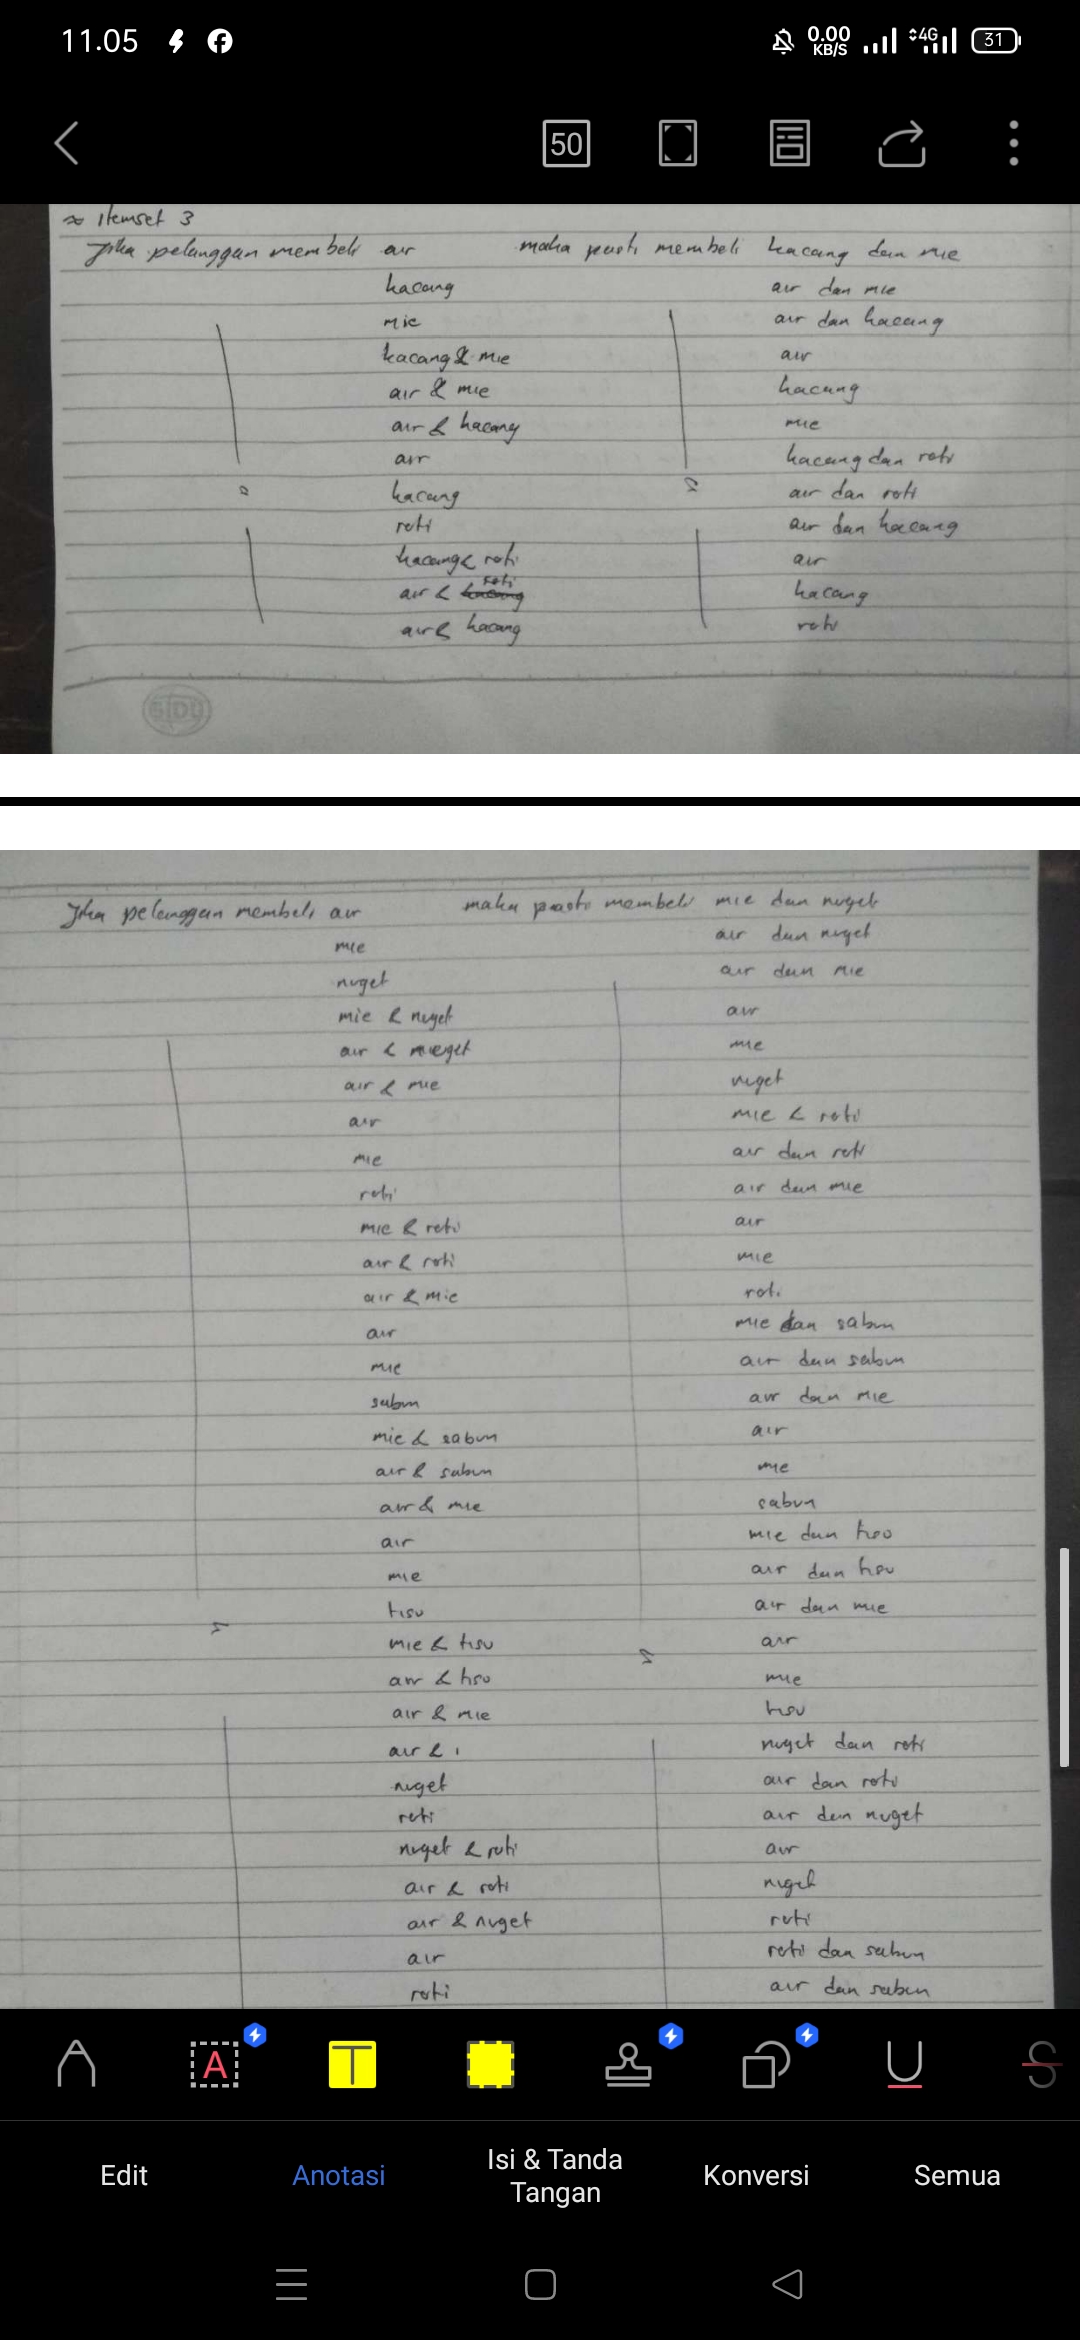 11.05
0.00 KB/S 4G 31
50
≈ Itemset 3
Jika pelanggan membeli air maka pasti membeli kacang dan mie
kacang air dan mie
mie air dan kacang
kacang & mie air
air & mie kacang
air & kacang mie
air kacang dan roti
kacang air dan roti
roti air dan kacang
kacang & roti air
air & roti kacang
air & kacang roti
SIDU
Jika pelanggan membeli air maka pasti membeli mie dan nuget
mie air dan nuget
nuget air dan mie
mie & nuget air
air & nuget mie
air & mie nuget
air mie & roti
mie air dan roti
roti air dan mie
mie & roti air
air & roti mie
air & mie roti
air mie dan sabun
mie air dan sabun
sabun air dan mie
mie & sabun air
air & sabun mie
air & mie sabun
air mie dan tisu
mie air dan tisu
tisu air dan mie
mie & tisu air
air & tisu mie
air & mie tisu
air & nuget dan roti
nuget air dan roti
roti air dan nuget
nuget & roti air
air & roti nuget
air & nuget roti
air roti dan sabun
roti air dan sabun
A T U S
Edit Anotasi Isi & Tanda Tangan Konversi Semua